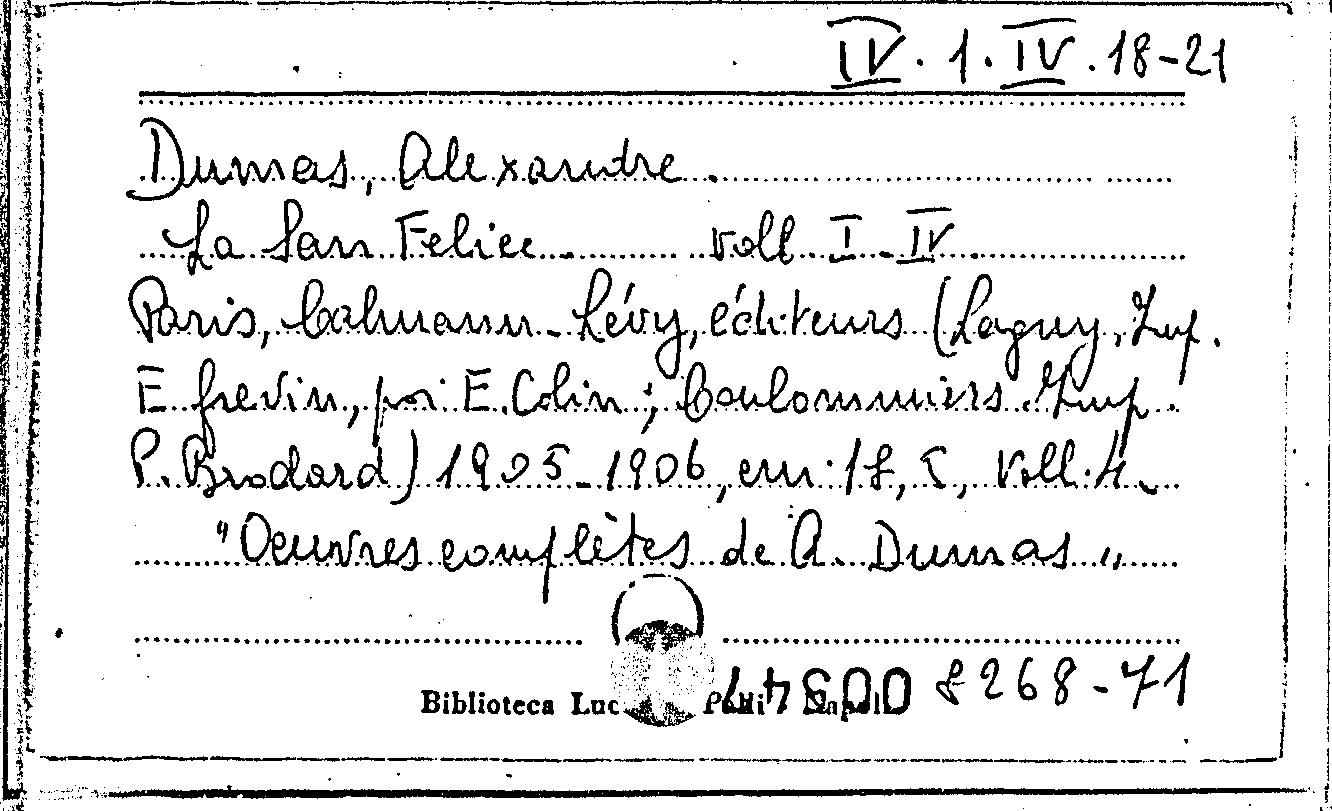 IV. 1. IV. 18-21
Dumas, Alexandre.
La San Felice. Voll. I-IV
Paris, Calmann-Lévy, éditeurs (Lagny, Imp.
E. Grevin, poi E. Colin; Coulommiers. Imp.
P. Brodard) 1905-1906, cm. 18,5, Voll. 4.
"Oeuvres complètes de A. Dumas"
8268-71
Biblioteca